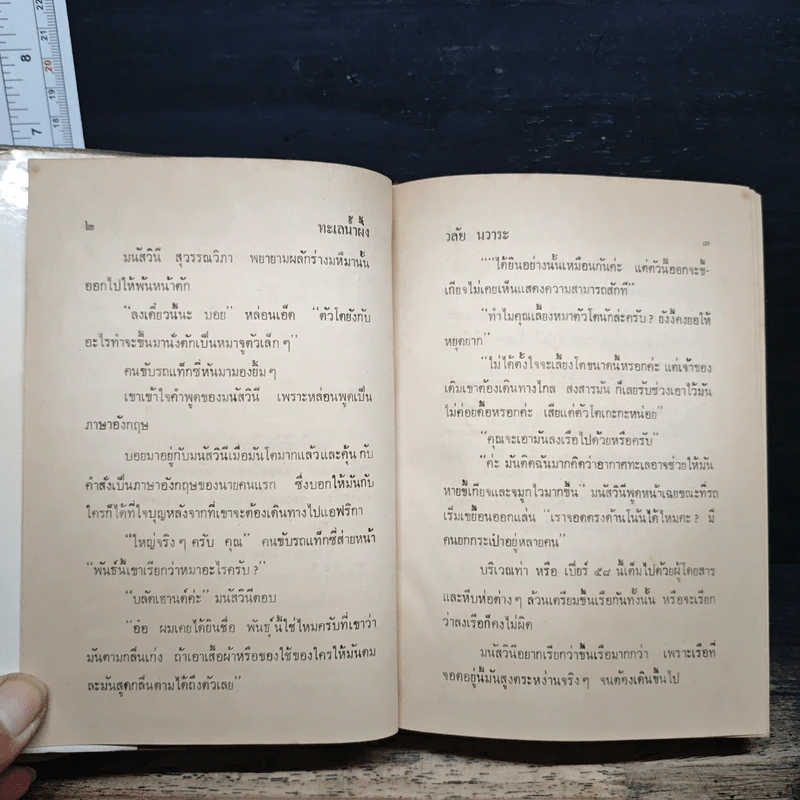 22
8
20
7
18
๒
ทะเลน้ำผึ้ง
มนัสวินี สุวรรณวิภา พยายามผลักร่างมหึมานั้น
ออกไปให้พ้นหน้าตัก
“ลงเดี๋ยวนี้นะ บอย” หล่อนเอ็ด “ตัวโตยังกับ
อะไรทำจะขึ้นมานั่งตักเป็นหมาจูตัวเล็ก ๆ”
คนขับรถแท็กซี่หันมามองยิ้ม ๆ
เขาเข้าใจคำพูดของมนัสวินี เพราะหล่อนพูดเป็น
ภาษาอังกฤษ
บอยมาอยู่กับมนัสวินีเมื่อมันโตมากแล้วและคุ้นกับ
คำสั่งเป็นภาษาอังกฤษของนายคนแรก ซึ่งบอกให้มันกับ
ใครก็ได้ที่ใจบุญหลังจากที่เขาจะต้องเดินทางไปแอฟริกา
“ใหญ่จริง ๆ ครับ คุณ” คนขับรถแท็กซี่ส่ายหน้า
“พันธุ์นี้เขาเรียกว่าหมาอะไรครับ ?
“บลัดเฮานด์ค่ะ” มนัสวินีตอบ
“อ๋อ ผมเคยได้ยินชื่อ พันธุ์นี้ใช่ไหมครับที่เขาว่า
มันตามกลิ่นเก่ง ถ้าเอาเสื้อผ้าหรือของใช้ของใครให้มันดม
ละมันสูดกลิ่นตามได้ถึงตัวเลย”
วลัย นวาระ
๓
““ได้ยินอย่างนั้นเหมือนกันค่ะ แต่ตัวนี้ออกจะขี้-
เกียจไม่เคยเห็นแสดงความสามารถสักที”
“ทำไมคุณเลี้ยงหมาตัวโตนักล่ะครับ ? ยังงี้คงยอให้
หยุดยาก”
“ไม่ได้ตั้งใจจะเลี้ยงโตขนาดนี้หรอกค่ะ แต่เจ้าของ
เดิมเขาต้องเดินทางไกล สงสารมัน ก็เลยรับช่วงเอาไว้มัน
ไม่ค่อยดื้อหรอกค่ะ เสียแต่ตัวโตเกะกะหน่อย”
“คุณจะเอามันลงเรือไปด้วยหรือครับ”
“ค่ะ มันติดฉันมากคิดว่าอากาศทะเลอาจช่วยให้มัน
หายขี้เกียจและจมูกไวมากขึ้น” มนัสวินีพูดหน้าเฉยขณะที่รถ
เริ่มเขยื้อนออกแล่น “เราจอดตรงด้านโน้นได้ไหมคะ ? มี
คนยกกระเป๋าอยู่หลายคน”
บริเวณท่า หรือ เปียร์ ๕๘ นี้เต็มไปด้วยผู้โดยสาร
และหีบห่อต่าง ๆ ล้วนเตรียมขึ้นเรือกันทั้งนั้น หรือจะเรียก
ว่าลงเรือก็คงไม่ผิด
มนัสวินีอยากเรียกว่าขึ้นเรือมากกว่า เพราะเรือที่
จอดอยู่นี้มันสูงตระหง่านจริง ๆ จนต้องเดินขึ้นไป